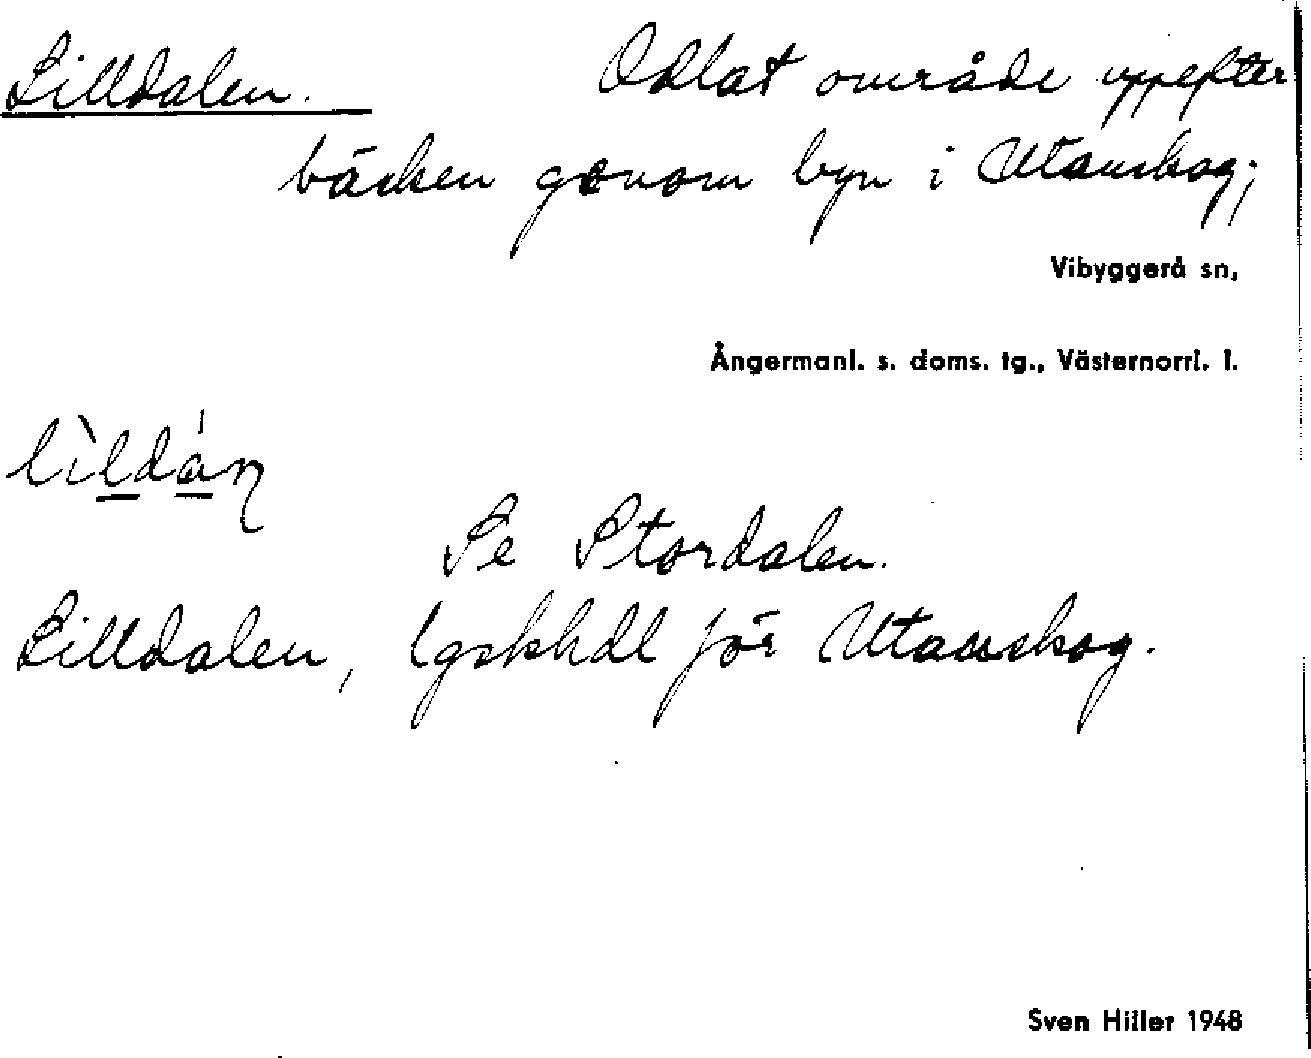 Lilldalen. Odlat område uppefter
bäcken genom byn i Utanskog;
Vibyggerå sn,
Ångermanl. s. doms. tg., Västernorrl. l.
lìldáɳ
Se Stordalen.
Lilldalen, lgskhdl för Utanskog.
Sven Hiller 1948